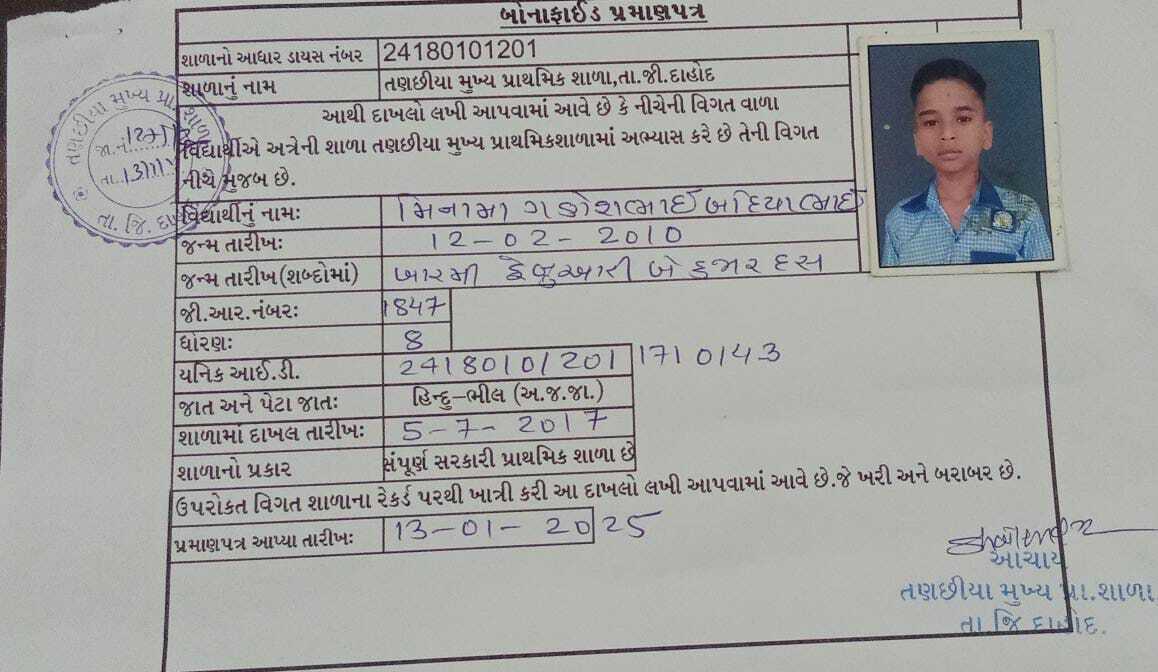 બોનાફાઈડ પ્રમાણપત્ર
શાળાનો આધાર ડાયસ નંબર 24180101201
શાળાનું નામ તણછીયા મુખ્ય પ્રાથમિક શાળા,તા.જી.દાહોદ
આથી દાખલો લખી આપવામાં આવે છે કે નીચેની વિગત વાળા
વિદ્યાર્થીએ અત્રેની શાળા તણછીયા મુખ્ય પ્રાથમિકશાળામાં અભ્યાસ કરે છે તેની વિગત
નીચે મુજબ છે.
તણછીયા મુખ્ય પ્રા. શાળા
જા.નં.
તા.
તા. જિ. દાહોદ
વિદ્યાર્થીનું નામઃ મિનામા ગણેશભાઈ બદિયાભાઈ
જન્મ તારીખઃ 12-02-2010
જન્મ તારીખ(શબ્દોમાં) બારમી ફેબ્રુઆરી બે હજાર દસ
જી.આર.નંબરઃ 1847
ધોરણઃ 8
યનિક આઈ.ડી. 241801012011710143
જાત અને પેટા જાતઃ હિન્દુ-ભીલ (અ.જ.જા.)
શાળામાં દાખલ તારીખઃ 5-7-2017
શાળાનો પ્રકાર સંપૂર્ણ સરકારી પ્રાથમિક શાળા છે
ઉપરોક્ત વિગત શાળાના રેકર્ડ પરથી ખાત્રી કરી આ દાખલો લખી આપવામાં આવે છે.જે ખરી અને બરાબર છે.
પ્રમાણપત્ર આપ્યા તારીખઃ 13-01-2025
આચાર્ય
તણછીયા મુખ્ય પ્રા.શાળા
તા.જિ દાહોદ.